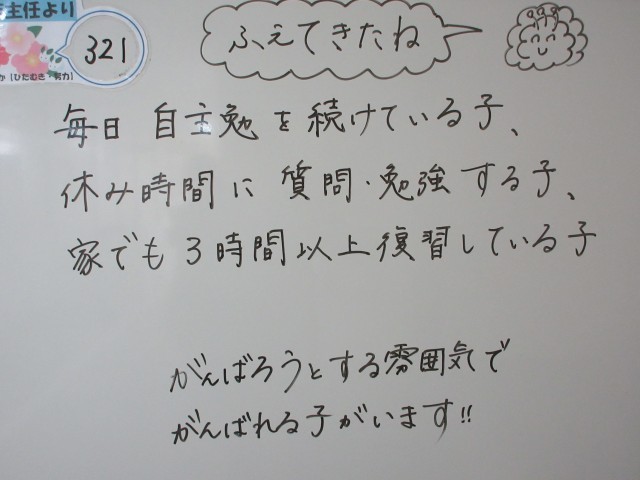 主任より
321
(ひたむき 努力)
ふえてきたね
毎日 自主勉を続けている子、
休み時間に 質問・勉強する子、
家でも3時間以上復習している子
がんばろうとする雰囲気で
がんばれる子がいます!!